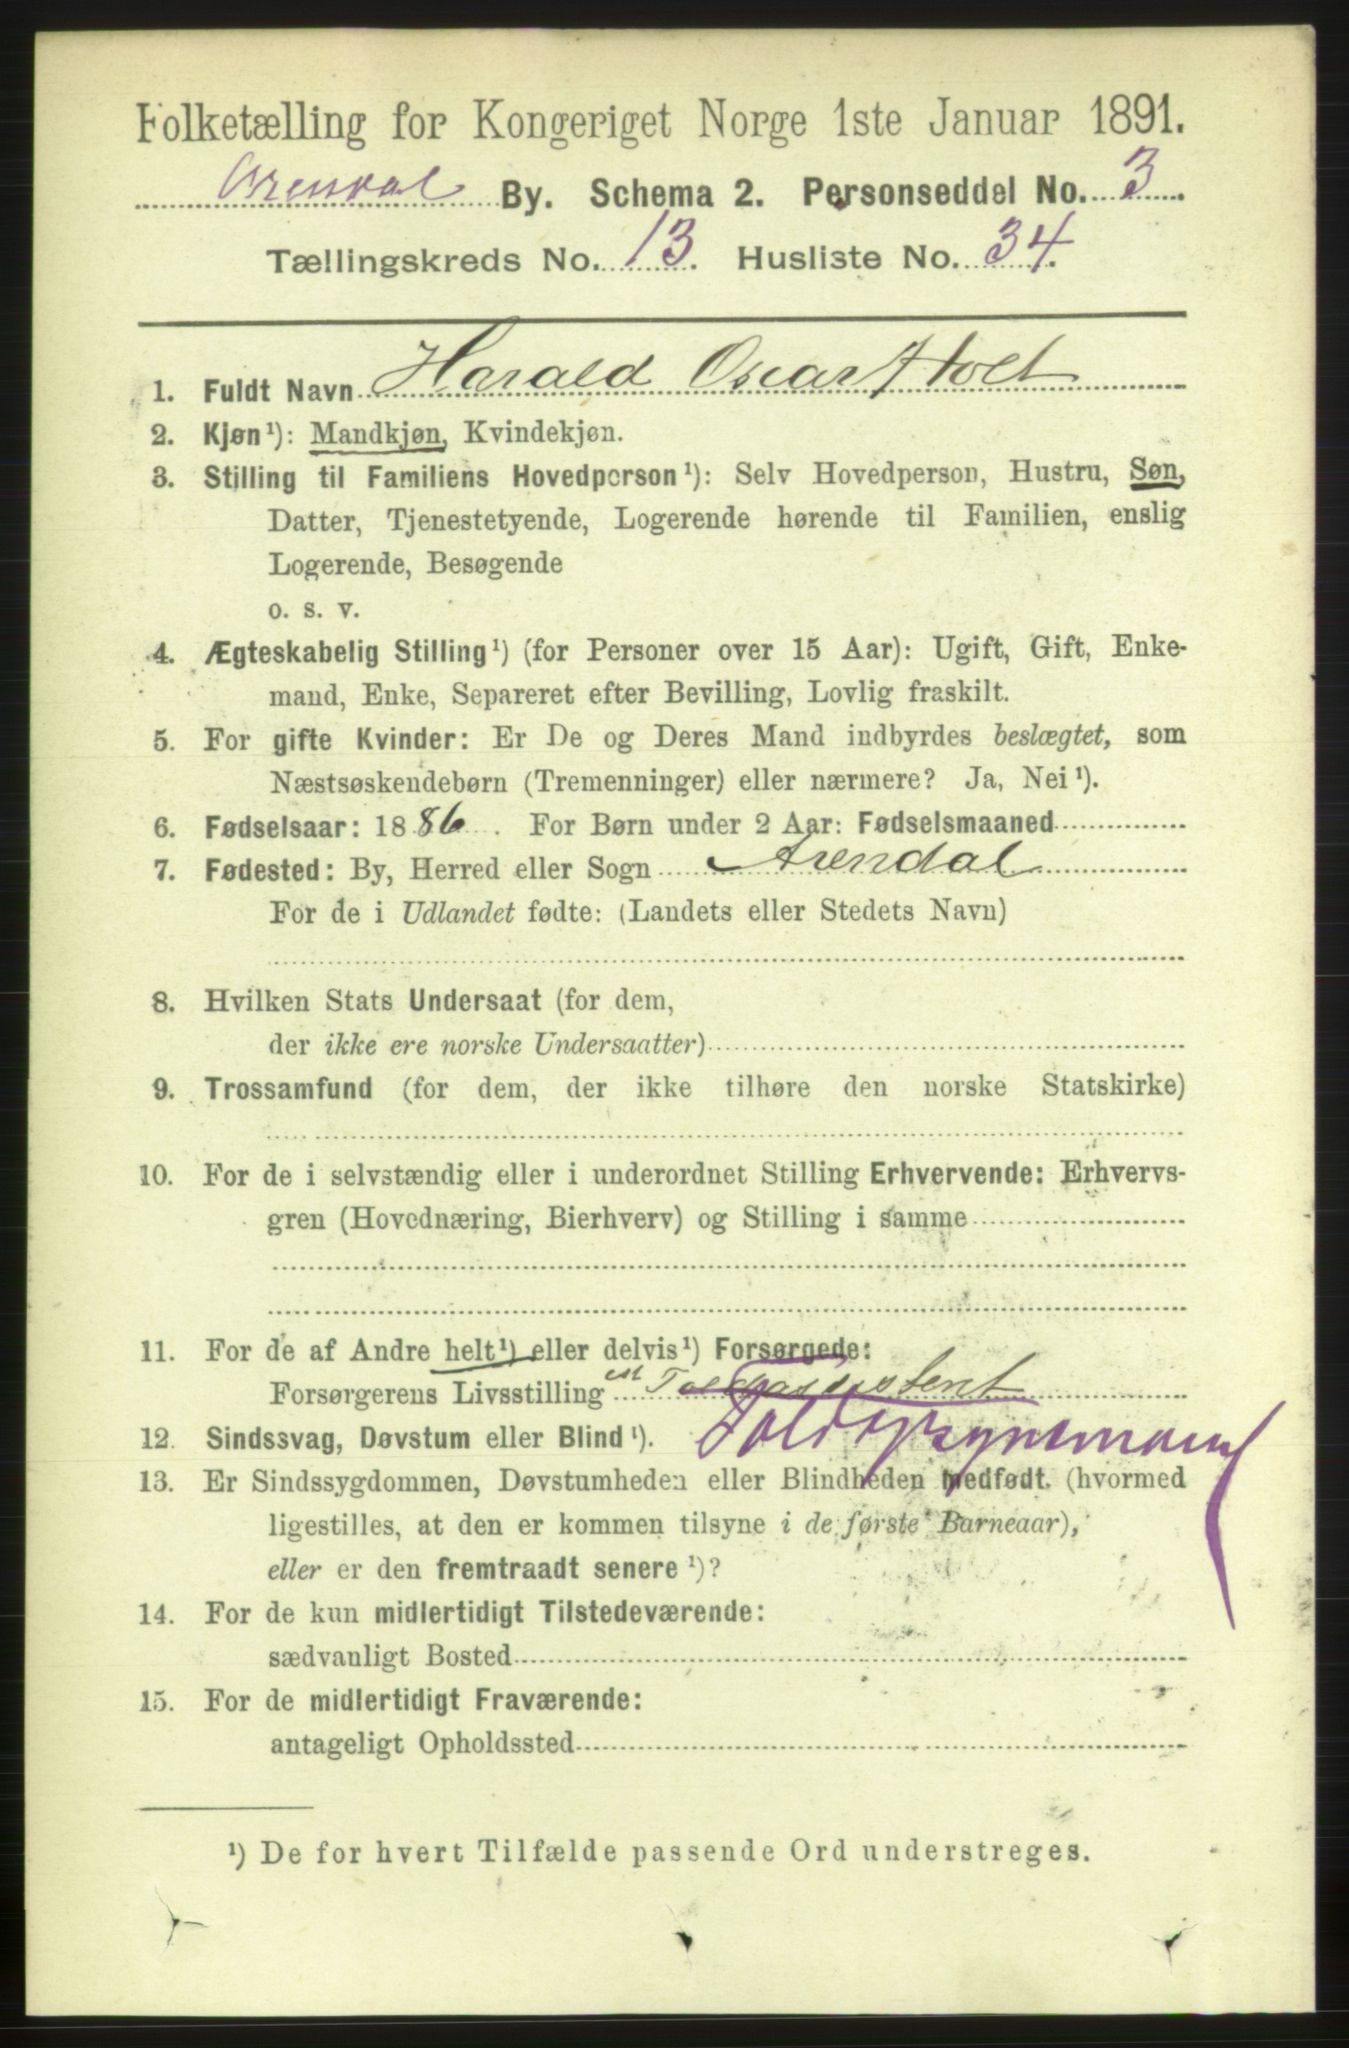 Folketælling for Kongeriget Norge 1ste Januar 1891.
Arendal By. Schema 2. Personseddel No. 3.
Tællingskreds No. 13. Husliste No. 34.
1. Fuldt Navn Harald Oscar Holt
2. Kjøn¹): Mandkjøn, Kvindekjøn.
3. Stilling til Familiens Hovedperson¹): Selv Hovedperson, Hustru, Søn,
Datter, Tjenestetyende, Logerende hørende til Familien, enslig
Logerende, Besøgende
o. s. v.
4. Ægteskabelig Stilling¹) (for Personer over 15 Aar): Ugift, Gift, Enke-
mand, Enke, Separeret efter Bevilling, Lovlig fraskilt.
5. For gifte Kvinder: Er De og Deres Mand indbyrdes beslægtet, som
Næstsøskendebørn (Tremenninger) eller nærmere? Ja, Nei¹).
6. Fødselsaar: 1886. For Børn under 2 Aar: Fødselsmaaned
7. Fødested: By, Herred eller Sogn Arendal
For de i Udlandet fødte: (Landets eller Stedets Navn)
8. Hvilken Stats Undersaat (for dem,
der ikke ere norske Undersaatter)
9. Trossamfund (for dem, der ikke tilhøre den norske Statskirke)
10. For de i selvstændig eller i underordnet Stilling Erhvervende: Erhvervs-
gren (Hovednæring, Bierhverv) og Stilling i samme
11. For de af Andre helt¹) eller delvis¹) Forsørgede:
Forsørgerens Livsstilling Toldassistent
12. Sindssvag, Døvstum eller Blind¹). Toldopsynsmand
13. Er Sindssygdommen, Døvstumheden eller Blindheden medfødt. (hvormed
ligestilles, at den er kommen tilsyne i de første Barneaar),
eller er den fremtraadt senere¹)?
14. For de kun midlertidigt Tilstedeværende:
sædvanligt Bosted
15. For de midlertidigt Fraværende:
antageligt Opholdssted
¹) De for hvert Tilfælde passende Ord understreges.